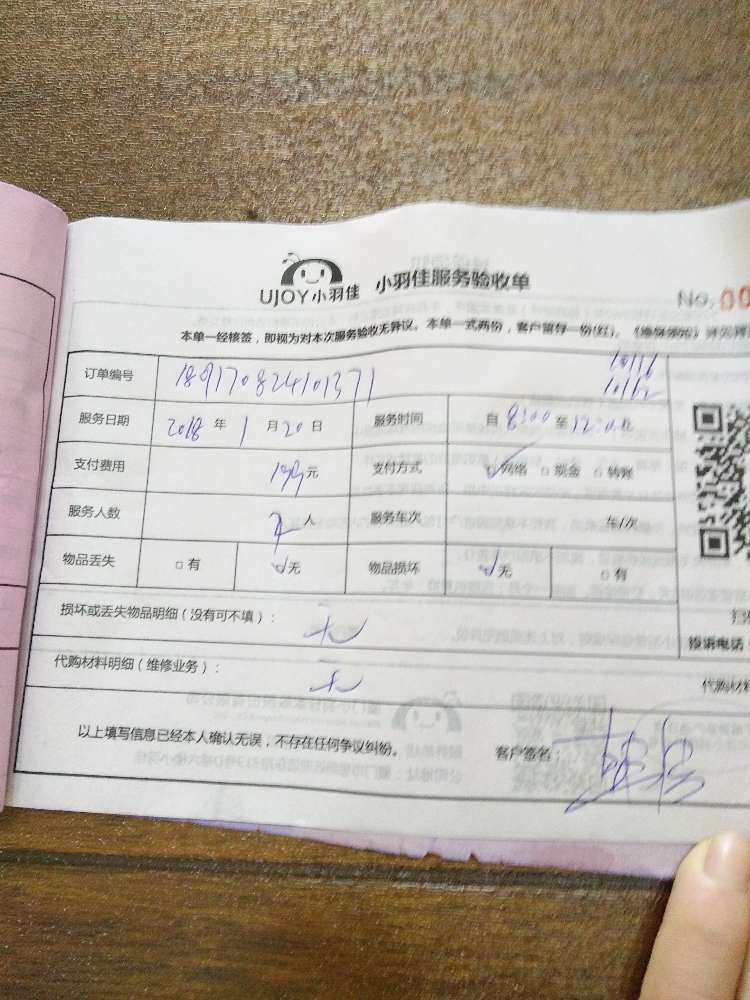 UJOY小羽佳 小羽佳服务验收单 No. 00
本单一经核签，即视为对本次服务验收无异议。本单一式两份，客户留存一份(红)。
10116
10162
订单编号 189170824101371
服务日期 2018 年 1 月 20 日 服务时间 自 8:00 至 12:00
支付费用 199元 支付方式 网络 □ 现金 □ 转账
服务人数 人 服务车次 车/次
物品丢失 □ 有 无 物品损坏 无 □ 有
损坏或丢失物品明细（没有可不填）： 无
代购材料明细（维修业务）： 无
以上填写信息已经本人确认无误，不存在任何争议纠纷。 客户签名：
投诉电话
代购材料